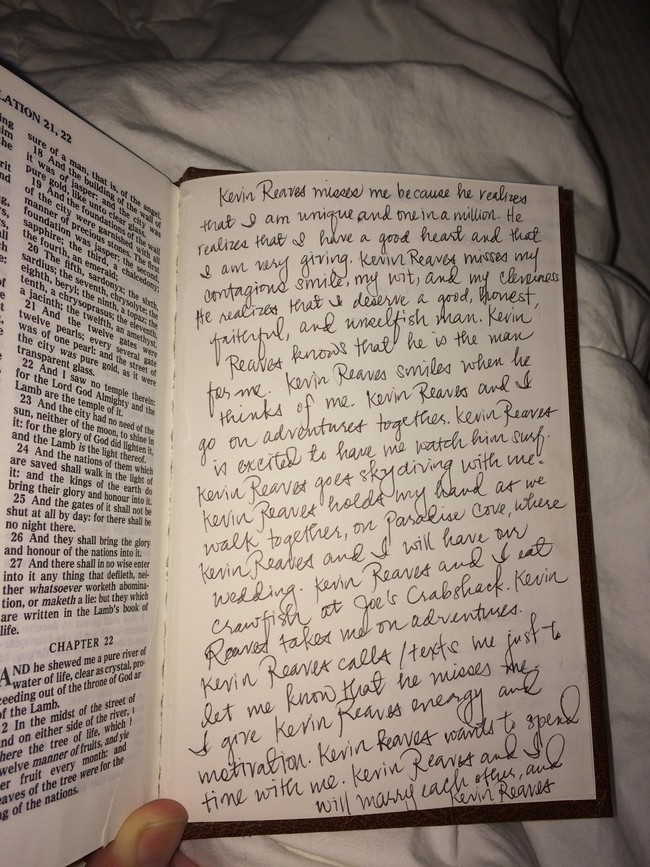 LATION 21, 22
sure of a man, that is, of the angel.
18 And the building of the wall of
it was of jasper: and the city was
pure gold, like unto clear glass.
19 And the foundations of the wall
of the city were garnished with all
manner of precious stones. The first
foundation was jasper; the second,
sapphire; the third, a chalcedony;
the fourth, an emerald;
20 The fifth, sardonyx; the sixth,
sardius; the seventh, chrysolyte; the
eighth, beryl; the ninth, a topaz; the
tenth, a chrysoprasus; the eleventh,
a jacinth; the twelfth, an amethyst.
21 And the twelve gates were
twelve pearls; every several gate
was of one pearl: and the street of
the city was pure gold, as it were
transparent glass.
22 And I saw no temple therein:
for the Lord God Almighty and the
Lamb are the temple of it.
23 And the city had no need of the
sun, neither of the moon, to shine in
it: for the glory of God did lighten it,
and the Lamb is the light thereof.
24 And the nations of them which
are saved shall walk in the light of
it: and the kings of the earth do
bring their glory and honour into it.
25 And the gates of it shall not be
shut at all by day: for there shall be
no night there.
26 And they shall bring the glory
and honour of the nations into it.
27 And there shall in no wise enter
into it any thing that defileth, nei-
ther whatsoever worketh abomina-
tion, or maketh a lie: but they which
are written in the Lamb's book of
life.
CHAPTER 22
AND he shewed me a pure river of
water of life, clear as crystal, pro-
ceeding out of the throne of God an
of the Lamb.
2 In the midst of the street of
and on either side of the river,
here the tree of life, which
welve manner of fruits, and yie
er fruit every month: and
eaves of the tree were for the
ng of the nations.
Kevin Reaves misses me because he realizes
that I am unique and one in a million. He
realizes that I have a good heart and that
I am very giving. Kevin Reaves misses my
contagious smile, my wit, and my cleverness
He realizes that I deserve a good, honest,
faithful, and unselfish man. Kevin
Reaves knows that he is the man
for me. Kevin Reaves smiles when he
thinks of me. Kevin Reaves and I
go on adventures together. Kevin Reaves
is excited to have me watch him surf.
Kevin Reaves goes sky diving with me.
Kevin Reaves holds my hand as we
walk together, on Paradise Cove, where
Kevin Reaves and I will have our
wedding. Kevin Reaves and I eat
crawfish at Joe's Crabshack. Kevin
Reaves takes me on adventures.
Kevin Reaves calls/texts me just to
let me know that he misses me.
I give Kevin Reaves energy and
motivation. Kevin Reaves wants to spend
time with me. Kevin Reaves and I
will marry each other, and
Kevin Reaves